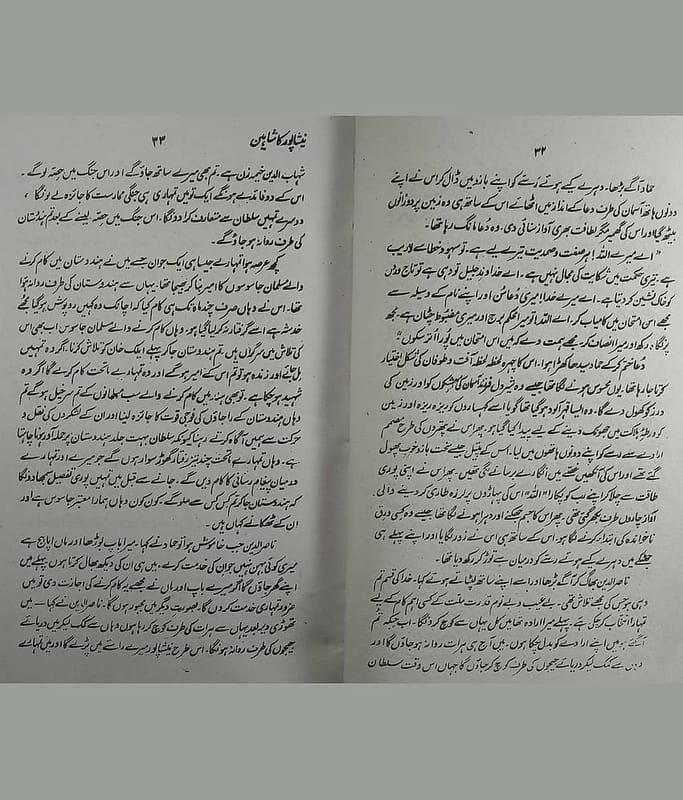 ۳۲
حماد آگے بڑھا۔ دہرے کیے ہوئے رسّے کو اپنے بازو میں ڈال کر اس نے اپنے
دونوں ہاتھ آسمان کی طرف دعا کے انداز میں اٹھائے اس کے ساتھ ہی وہ زمین پر دوزانو
بیٹھ گیا اور اس کی گھمبیر مگر لطافت بھری آواز سنائی دی۔ وہ دعا مانگ رہا تھا۔
"اے میرے اللہ! ہر صفت و صمدیت تیرے لیے ہے۔ تو سہو و خطا سے لاریب
ہے۔ تیری حکمت میں شکایت کی مجال نہیں ہے۔ اے خداوندِ جلیل تو وہی ہے تو تاج وروں
کو خاک نشیں کر دیتا ہے۔ اے میرے خدا! میری دعا سن اور اپنے نام کے وسیلہ سے
مجھے اس امتحان میں کامیاب کر۔ اے اللہ! تو میرا محکم برج اور میری مضبوط چٹان ہے۔ مجھ
پر نگاہ رکھ اور میرا انصاف کر۔ مجھے ہمت دے کہ میں اس امتحان میں پورا اُتر سکوں"
دعا ختم کر کے حماد سیدھا کھڑا ہوا۔ اس کا چہرہ لحظہ لحظہ آفت و طوفان کی شکل اختیار
کرتا جا رہا تھا۔ یوں محسوس ہونے لگا تھا جیسے وہ تیرہ دل فضائے آسمان کی اور زمین کی
درزکو کھول دے گا۔ وہ ایسا قہر آلود ہو گیا تھا گویا اسے کہساروں کو ریزہ ریزہ اور زمین
کو ورطۂ ہلاکت میں جھونک دینے کے لیے پیدا کیا گیا ہو۔ پھر اس نے پتھروں کی طرح مصمم
ارادے سے رسے کو اپنے دونوں ہاتھوں میں لیا۔ اس کے پٹیل جیسے سخت بازو خوب پھول
گئے تھے اور اس کی آنکھیں غصے میں انگارے برسانے لگی تھیں۔ پھر اس نے اپنی پوری
طاقت سے چلا کر اپنے رب کو پکارا "اللہ" اس کی پہاڑوں پر لرزہ طاری کر دینے والی
آواز چاروں طرف بکھر گئی تھی۔ پھر اس کا جسم جھکنے اور دہرا ہونے لگا تھا جیسے وہ کسی ورق
ناخواندہ کی ابتدا کرنے لگا ہو۔ اس کے ساتھ ہی اس نے زور لگایا اور اپنے پہلے ہی
جھٹکے میں دہرے کیے ہوئے رسے کو درمیان سے توڑ کر رکھ دیا تھا۔
ناصر الدین بھاگ کر آگے بڑھا اور اسے اپنے ساتھ لپٹاتے ہوئے کہا۔ خدا کی قسم تم
وہی ہو جس کی مجھے تلاش تھی۔ بے عیب و بے نوم قدرت ملت کے کسی اہم کام کے لیے
تمہارا انتخاب کر چکی ہے۔ پہلے میرا ارادہ تھا میں کل یہاں سے کوچ کروں گا۔ اب جبکہ تم
آ گئے ہو میں اپنے ارادے کو بدل چکا ہوں۔ میں آج ہی ہرات روانہ ہو جاؤں گا اور
وہاں سے کمک لیکر دریائے جیحوں کی طرف کوچ کر جاؤں گا جہاں اس وقت سلطان
نیشاپور کا شاہین ۳۳
شہاب الدین خیمہ زن ہے۔ تم بھی میرے ساتھ جاؤ گے اور اس جنگ میں حصّہ لو گے۔
اس کے دو فائدے ہونگے ایک تو میں تمہاری ہی جنگی ممارست کا جائزہ لے لونگا،
دوسرے تمہیں سلطان سے متعارف کرا دونگا۔ اس جنگ میں حصّہ لینے کے بعد تم ہندوستان
کی طرف روانہ ہو جاؤ گے۔
کچھ عرصہ ہوا تمہارے جیسا ہی ایک جوان جسے میں نے ہندوستان میں کام کرنے
والے مسلمان جاسوسوں کا امیر بنا کر بھیجا تھا۔ یہاں سے ہندوستان کی طرف روانہ ہوا
تھا۔ اس نے وہاں صرف چند ماہ تک ہی کام کیا کہ اچانک وہ کہیں روپوش ہو گیا مجھے
خدشہ ہے اسے گرفتار نہ کر لیا گیا ہو۔ وہاں کام کرنے والے مسلمان جاسوس اب بھی اس
کی تلاش میں سرگرداں ہیں۔ تم ہندوستان جا کر پہلے ایلک خان کو تلاش کرنا۔ اگر وہ تمہیں
مل جائے اور زندہ ہو تو تم اس کے امیر ہو گے اور وہ تمہارے ماتحت کام کرے گا اگر وہ
شہید ہو چکا ہے۔ تو بھی ہند میں کام کرنے والے سب مسلمانوں کے تم سرخیل ہو گے تم
وہاں ہندوستان کے راجاؤں کی فوجی قوت کا جائزہ لینا اور ان کے لشکروں کی نقل و
حرکت سے ہمیں آگاہ کرتے رہنا کیونکہ سلطان بہت جلد ہندوستان پر حملہ آور ہونا چاہتا
ہے۔ وہاں تمہارے ماتحت چند تیز رفتار گھوڑ سوار ہوں گے جو میرے اور تمہارے
درمیان پیغام رسانی کا کام دیں گے۔ جانے سے قبل میں تمہیں پوری تفصیل سمجھا دونگا
کہ ہندوستان جا کر تم کس کس سے ملو گے۔ کون کون وہاں ہمارا معتبر جاسوس ہے اور
ان کے ٹھکانے کہاں ہیں۔
ناصر الدین جب خاموش ہوا تو حماد نے کہا۔ میرا باپ بوڑھا اور ماں اپاہج ہے
میری کوئی بہن نہیں جو ان کی خدمت کرے۔ میں ہی ان کی دیکھ بھال کرتا ہوں پہلے میں
اپنے گھر جاؤں گا اگر میرے باپ اور ماں نے مجھے یہ کام کرنے کی اجازت دی تو میں
ضرور تمہاری خدمت کروں گا۔ بصورتِ دیگر میں مجبور ہوں گا۔ ناصر الدین نے کہا — میں
تھوڑی دیر بعد یہاں سے ہرات کی طرف کوچ کر رہا ہوں وہاں سے کمک لیکر میں دریائے
جیحوں کی طرف روانہ ہونگا۔ اس طرح نیشاپور میرے راستے میں پڑے گا اور میں تمہارے